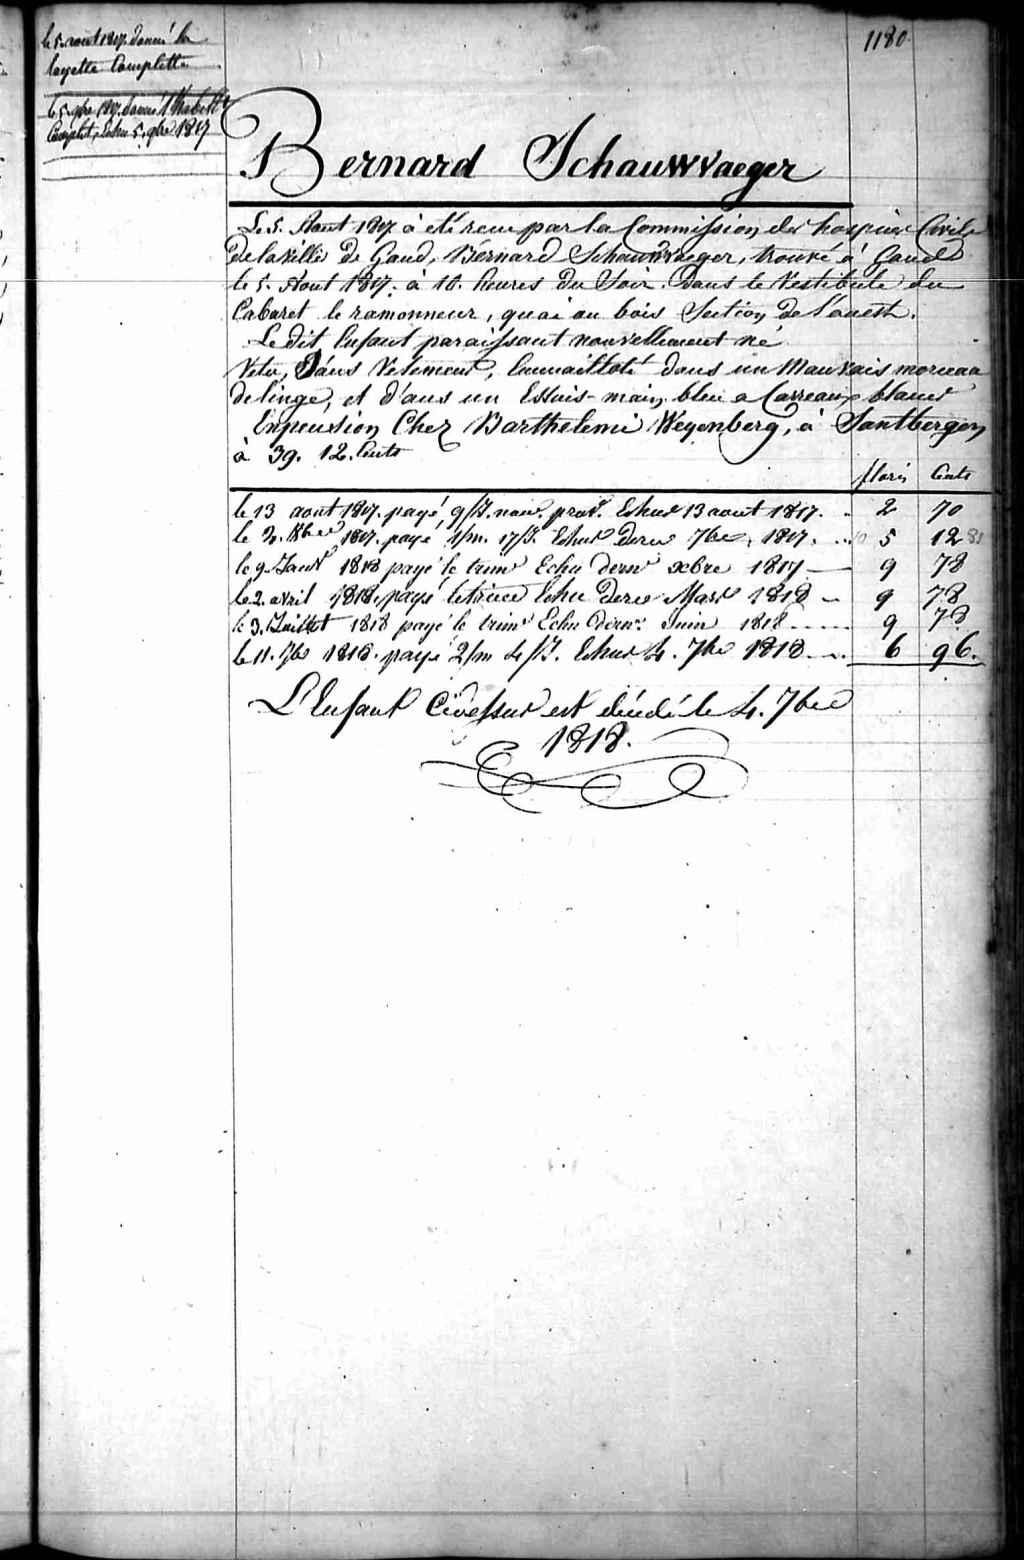 1180
le 5. aout 1817. donné la
layette Complette
le 5. 9bre 1817. donné
Complet, Echu 5. 9bre 1817
Bernard Schauwvaeger
Le 5. Aout 1817 à eté recu par la Commission des hospices Civils
de la Ville de Gand, Bernard Schauwvaeger, trouvé à Gand
le 5. Aout 1817. à 10. heures du Soir. dans le Vestibule du
Cabaret le ramonneur, quai au bois Section de l'ouest.
Le dit Enfant paraissant nouvellement né
Vetu, Sans Vetement, Emmailloté dans un Mauvais morceau
de linge, et d'ans un Essuis-main bleu a Carreaux blancs
Enpension Chez Barthelemi Weyenberg, à Santbergen
à 39. 12. Cents
floris Cents
le 13 aout 1817. payé, 9/J. nour. prov. Echus 13 aout 1817. 2 70
le 2. 8bre 1817. payé 1/m. 17/J. Echus derer 7bre, 1817. 5 12
le 9 Janvr 1818 payé le trimr Echu dernr xbre 1817 9 78
le 2. avril 1818. payé le trimre Echu derer Mars 1818 9 78
le 3. Juillet 1818 payé le trimr Echu dernr. Juin 1818 9 78
le 11. 7bre 1818. payé 2/m 4/J. Echus 4. 7bre 1818 6 96.
L'Enfant Cidessus est décédé le 4. 7bre
1818.